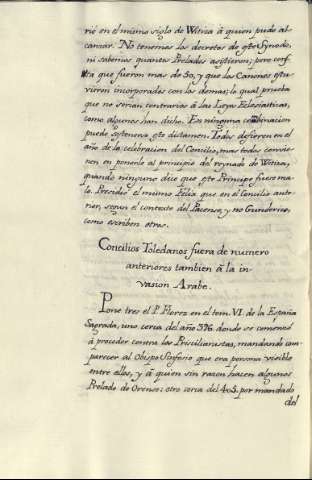 rió en el mismo siglo de Witiza á quien pudo al-
canzar. No tenemos los decretos de este Synodo,
ni sabemos quantos Prelados asistieron; pero cons-
ta que fueron mas de 50, y que los Canones estu-
vieron incorporados con los demas; lo qual prueba
que no serian contrarios á las Leyes Eclesiasticas,
como algunos han dicho. En ninguna combinacion
puede sostenerse este dictamen. Todos difieren en el
año de la celebracion del Concilio, mas todos convie-
nen en ponerlo al principio del reynado de Witiza,
quando ninguno dice que este Principe fuese ma-
lo. Presidió el mismo Felix que en el Concilio ante-
rior, segun el contexto del Pacense, y no Gunderico,
como escriben otros.
Concilios Toledanos fuera de numero
anteriores tambien á la in-
vasion Arabe.
Pone tres el P. Florez en el tom. VI. de la España
Sagrada, uno cerca del año 396. donde se comenzó
á proceder contra los Priscilianistas, mandando com-
parecer al Obispo Sinfosio que era persona visible
entre ellos, y á quien sin razon hacen algunos
Prelado de Orense: otro cerca del 405. por mandado
del